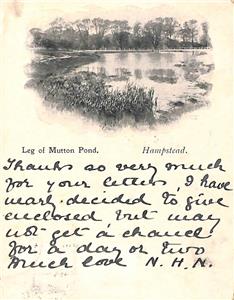 Leg of Mutton Pond. Hampstead.
Thanks so very much
for your letters, I have
nearly decided to give
enclosed, but may
not get a chance
for a day or two
Much love N. H. N.